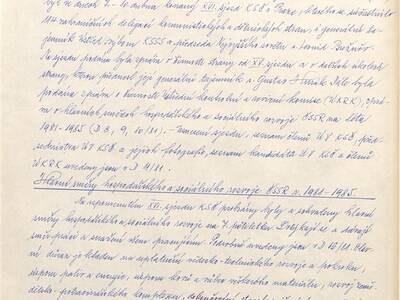 byl ve dnech 6.-10. dubna konaný XVI. sjezd KSČ v Praze, kterého se súčastnilo
114 zahraničních delegací komunistických a dělnických stran, i generální ta-
jemník Ústřed. výboru KSSS a předseda Nejvyššího sovětu Leonid Brežněv.
Na sjezdu podána byla zpráva o činnosti strany od XV. sjezdu a o dalších úkolech
strany, kterou přednesl její generální tajemník s. Gustav Husák. Dále byla
podána zpráva o činnosti Ústřední kontrolní a revizní komise (ÚKRK), zprá-
va o hlavních směrech hospodářského a sociálního rozvoje ČSSR na léta
1981-1985 (D 8, 9, 10/81). - Usnesení sjezdu, seznam členů ÚV KSČ, před-
sednictva ÚV KSČ a jejich fotografie, seznam kandidátů ÚV KSČ a členů
ÚKRK uvedeny jsou v D 4/81.
Hlavní směry hospodářského a sociálního rozvoje ČSSR v r. 1981-1985.
Na XVI. sjezdu KSČ probrány byly a schváleny hlavní
směry hospodářského a sociálního rozvoje na 7. pětiletku. Dotýkají se a dávají
směr práci a snažení všem pracujícím. Podrobně uvedeny jsou v D 10/81. Hlav-
ní důraz je kladen na uplatnění vědecko-technického rozvoje a pokroku,
úsporu paliv a energie, úsporu kovů a všeho materiálu, rozvoj země-
dělsko-potravinářského komplexu,